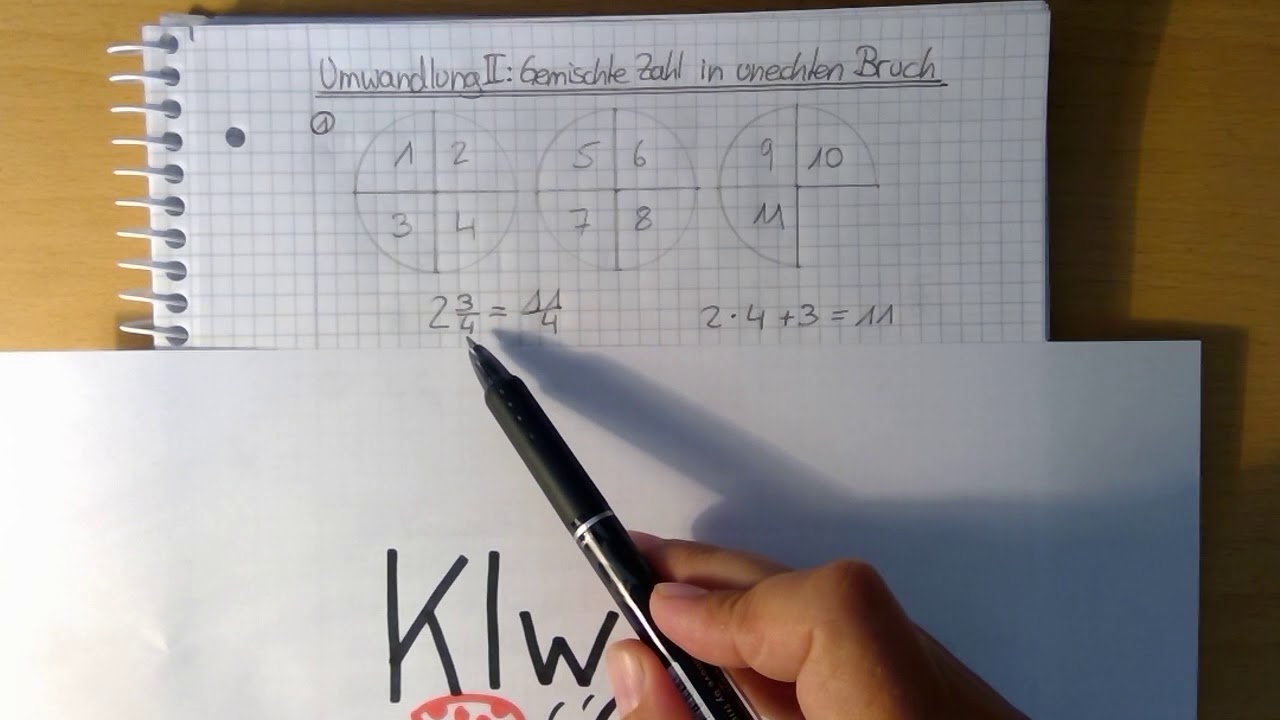 Umwandlung II: Gemischte Zahl in unechten Bruch
①
1 2 5 6 9 10
3 4 7 8 11
2 3/4 = 11/4 2·4+3=11
Klw